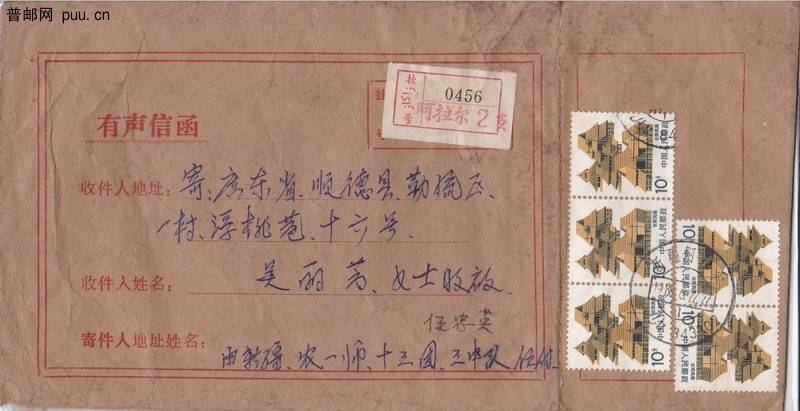 普邮网 puu.cn
挂号
0456
阿拉尔 2
有声信函
收件人地址:寄:广东省、顺德县、勒流区、
一村、浮桃苑、十六号
收件人姓名:吴丽芳、女士收启
任忠英
寄件人地址姓名:
由新疆、农一师、十三团、三中队 任付
10分
中国人民邮政
10分
中国人民邮政
10分
中国人民邮政
10分
中国人民邮政
10分
中国人民邮政